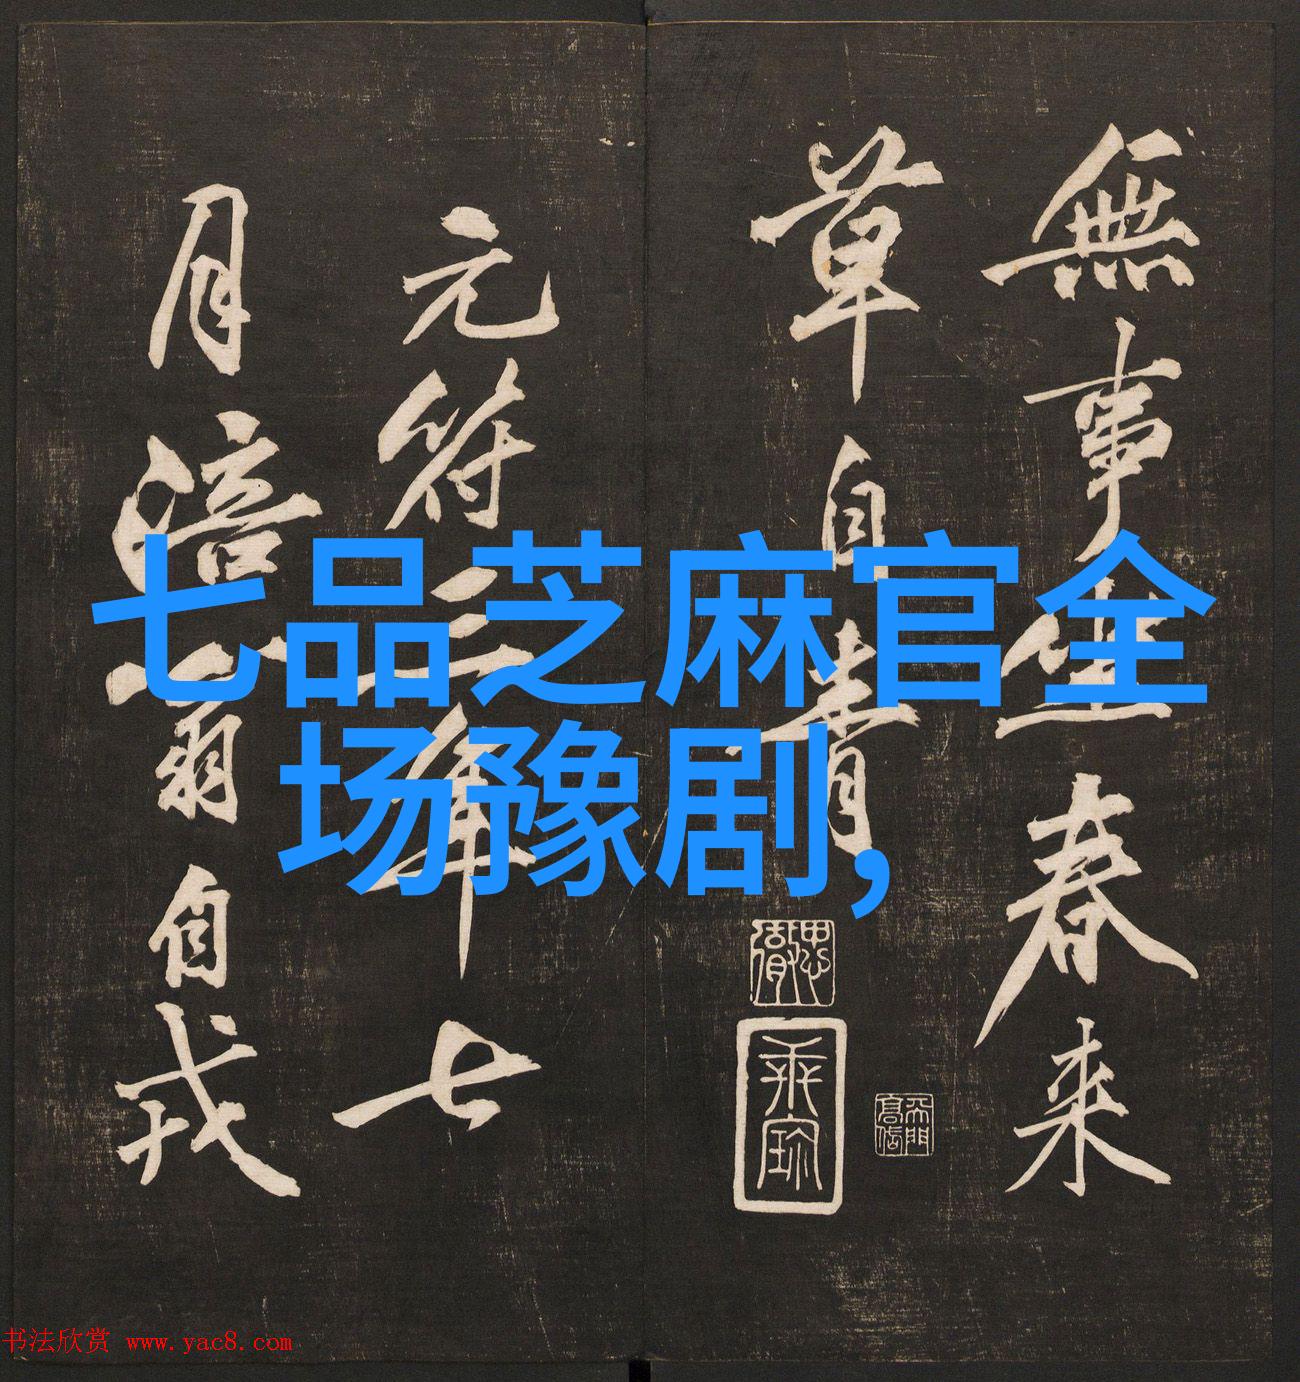 無事生春来
草自青
元符三年七
月涪翁自戎
七品芝麻官全
场豫剧,
书法欣赏 www.yac8.com